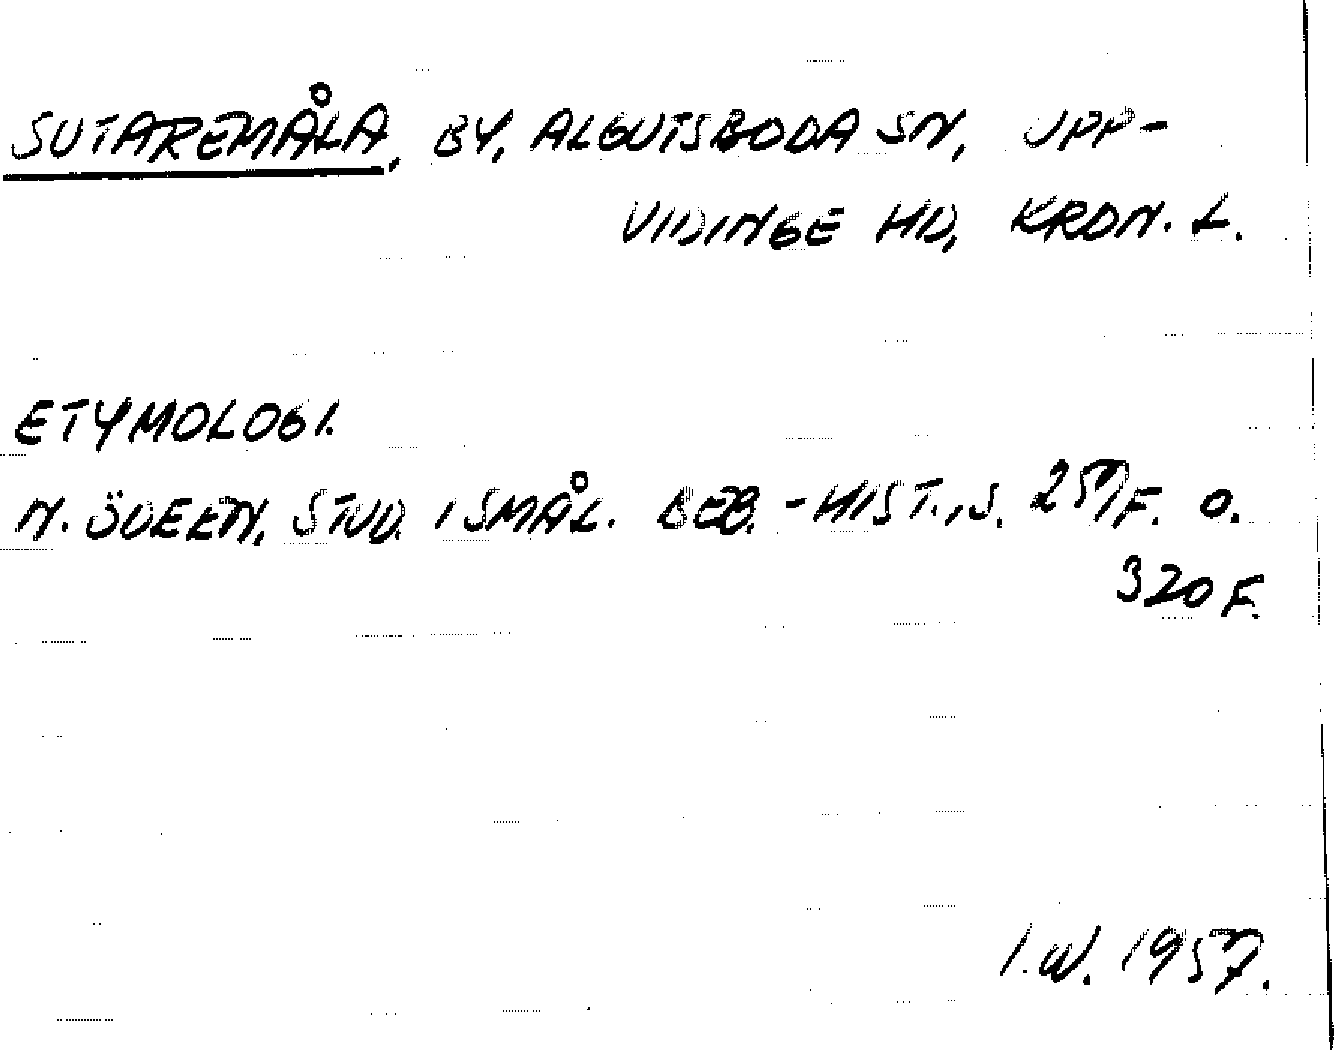 SUTAREMÅLA, BY, ALGUTSBODA SN, UPP-
VIDINGE HD, KRON. L.
ETYMOLOGI.
N. ÖDEEN, STUD. I SMÅL. BEB.-HIST., S. 257 F. O.
320 F.
I.W. 1957.